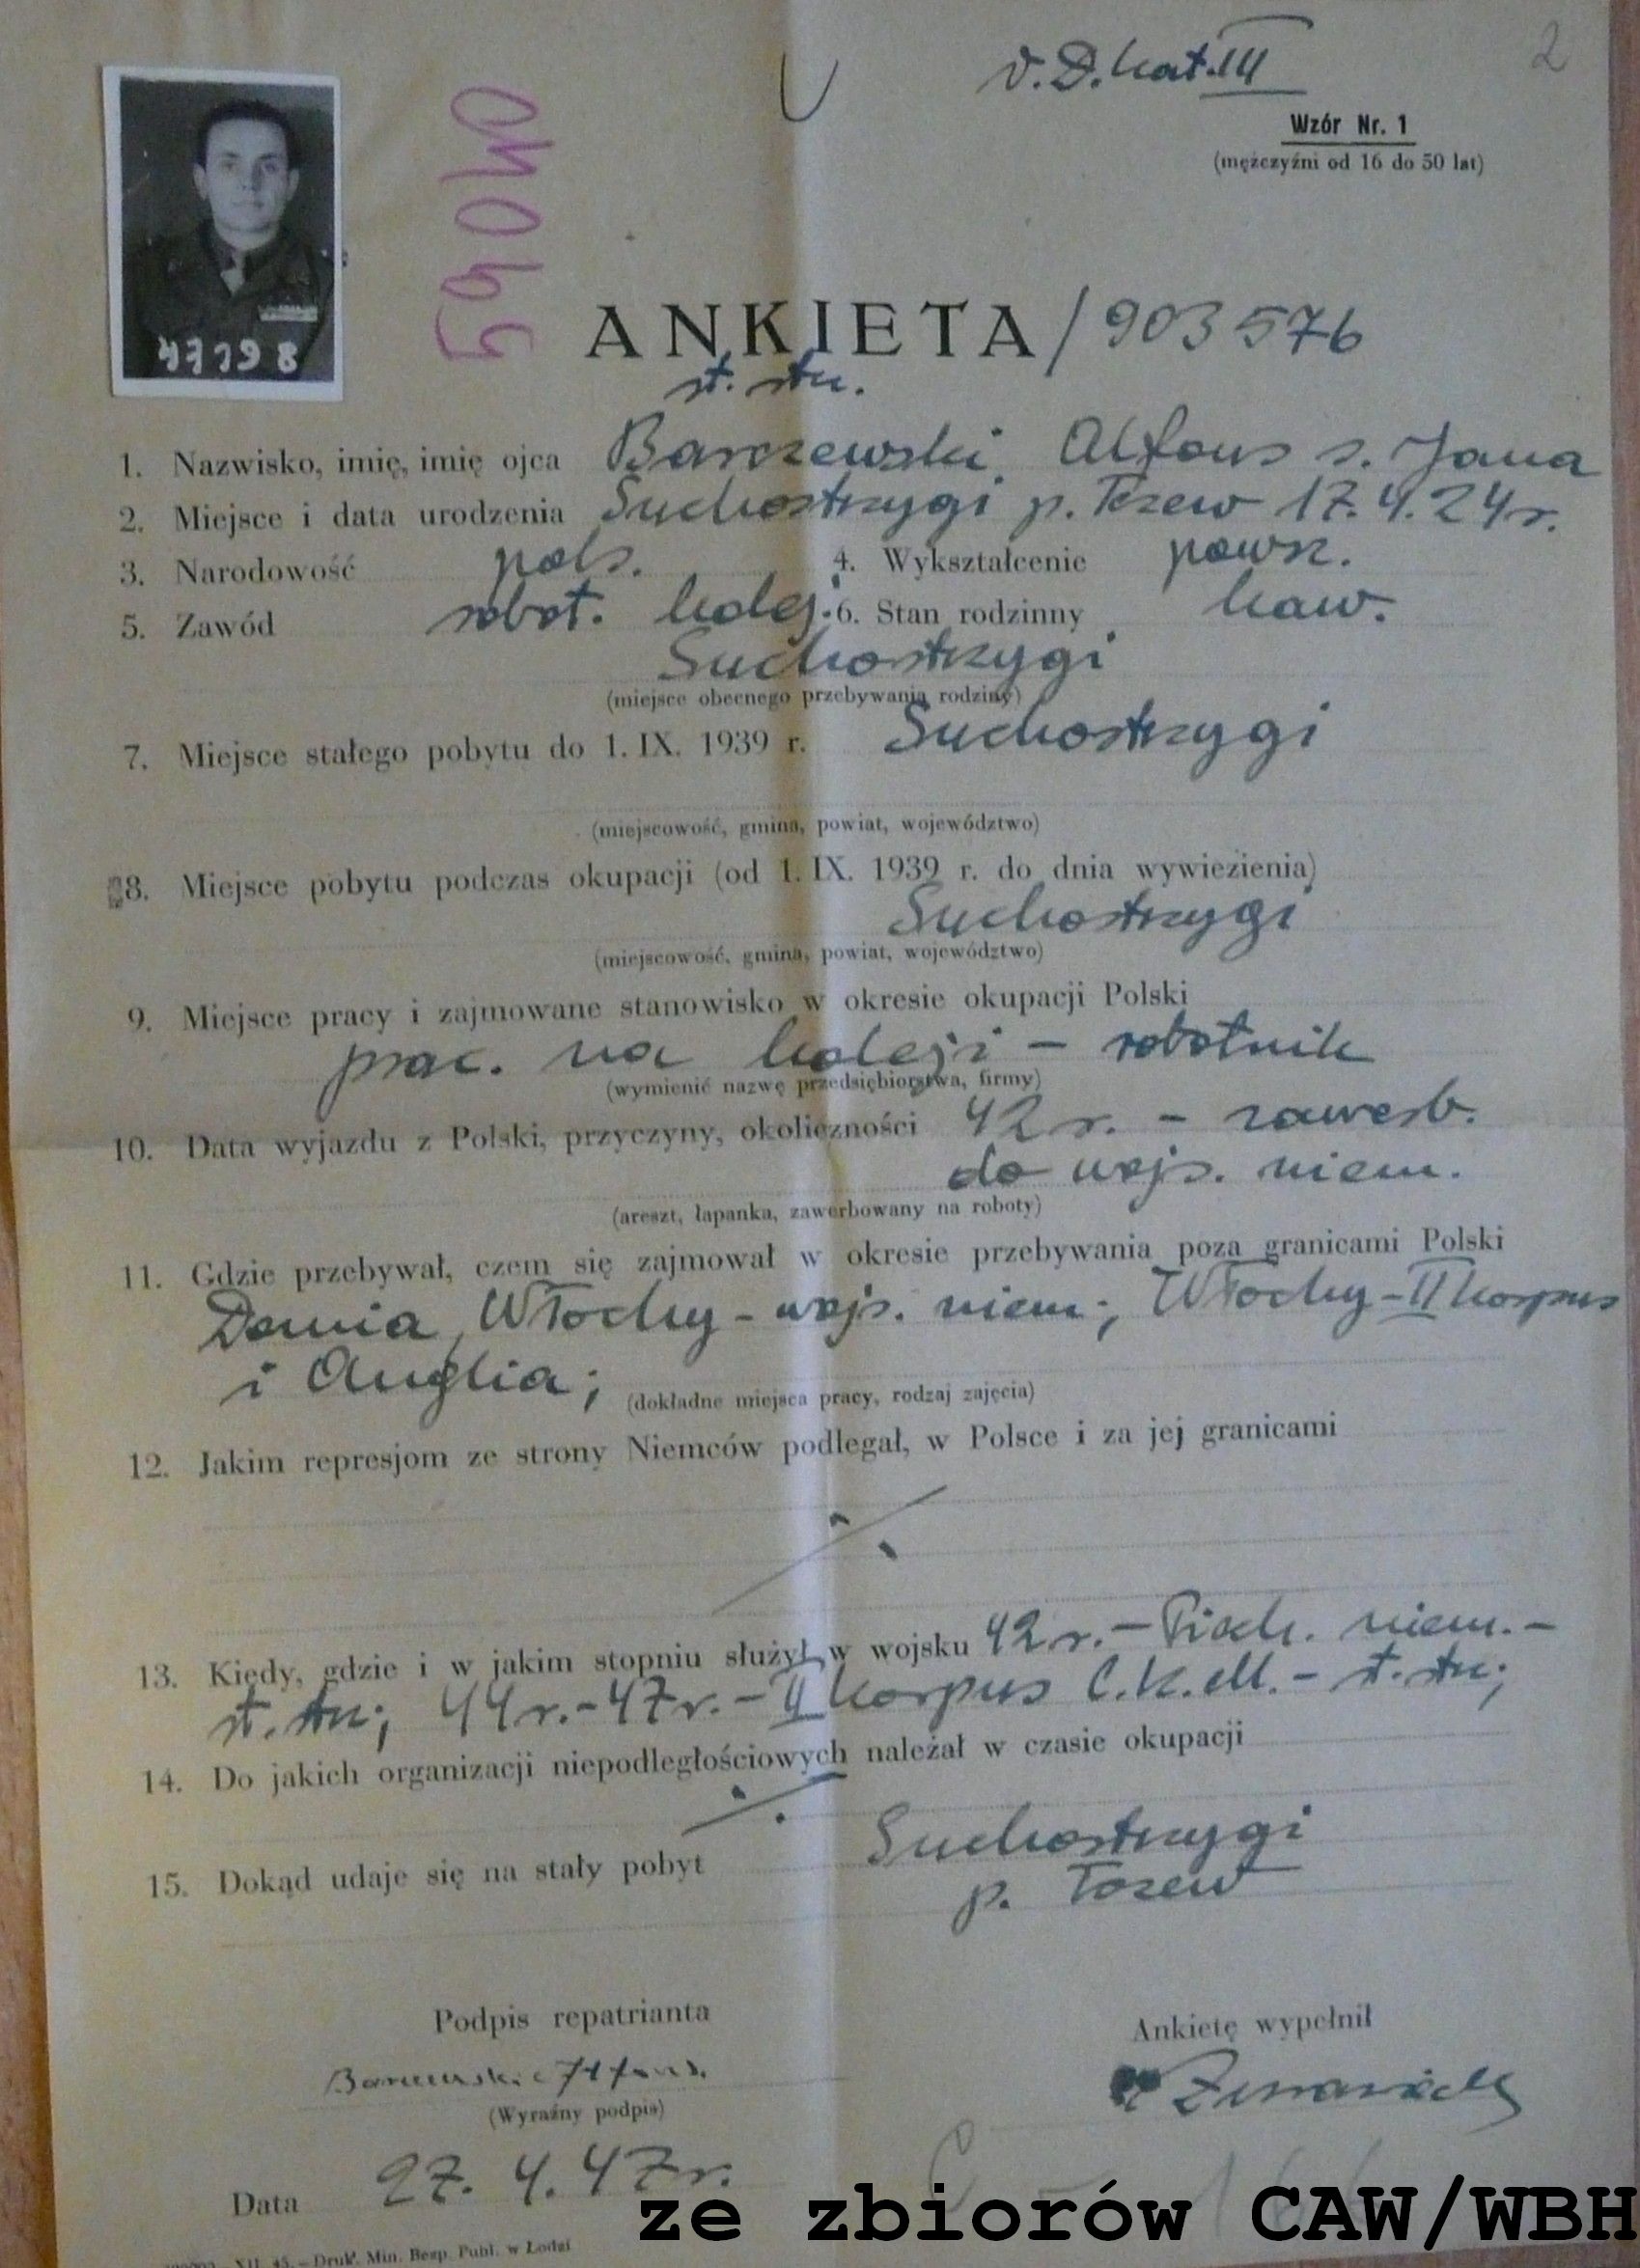 2
v. D. kat. III
Wzór Nr. 1
(mężczyźni od 16 do 50 lat)
59040
47398
ANKIETA / 903 576
st. stu.
1. Nazwisko, imię, imię ojca Barczewski Alfons s. Jana
2. Miejsce i data urodzenia Suchostrzygi p. Tczew 17.4.24r.
3. Narodowość pols. 4. Wykształcenie powsz.
5. Zawód robot. kolej. 6. Stan rodzinny kaw.
Suchostrzygi
(miejsce obecnego przebywania rodziny)
7. Miejsce stałego pobytu do 1. IX. 1939 r. Suchostrzygi
(miejscowość, gmina, powiat, województwo)
8. Miejsce pobytu podczas okupacji (od 1. IX. 1939 r. do dnia wywiezienia)
Suchostrzygi
(miejscowość, gmina, powiat, województwo)
9. Miejsce pracy i zajmowane stanowisko w okresie okupacji Polski
prac. na koleji – robotnik
(wymienić nazwę przedsiębiorstwa, firmy)
10. Data wyjazdu z Polski, przyczyny, okoliczności 42 r. – zawerb.
do wojs. niem.
(areszt, łapanka, zawerbowany na roboty)
11. Gdzie przebywał, czem się zajmował w okresie przebywania poza granicami Polski
Dania, Włochy – wojs. niem; Włochy – II Korpus
i Anglia;
(dokładne miejsca pracy, rodzaj zajęcia)
12. Jakim represjom ze strony Niemców podlegał, w Polsce i za jej granicami
13. Kiedy, gdzie i w jakim stopniu służył w wojsku 42 r. – Piech. niem. –
st. stu; 44 r. – 47 r. – II Korpus C.K.M. – st. stu;
14. Do jakich organizacji niepodległościowych należał w czasie okupacji
15. Dokąd udaje się na stały pobyt Suchostrzygi
p. Tczew
Podpis repatrianta
Ankietę wypełnił
Barczewski Alfons.
(Wyraźny podpis)
Data 27. 4. 47 r.
XII. 45. – Druk. Min. Bezp. Publ. w Łodzi
ze zbiorów CAW/WBH